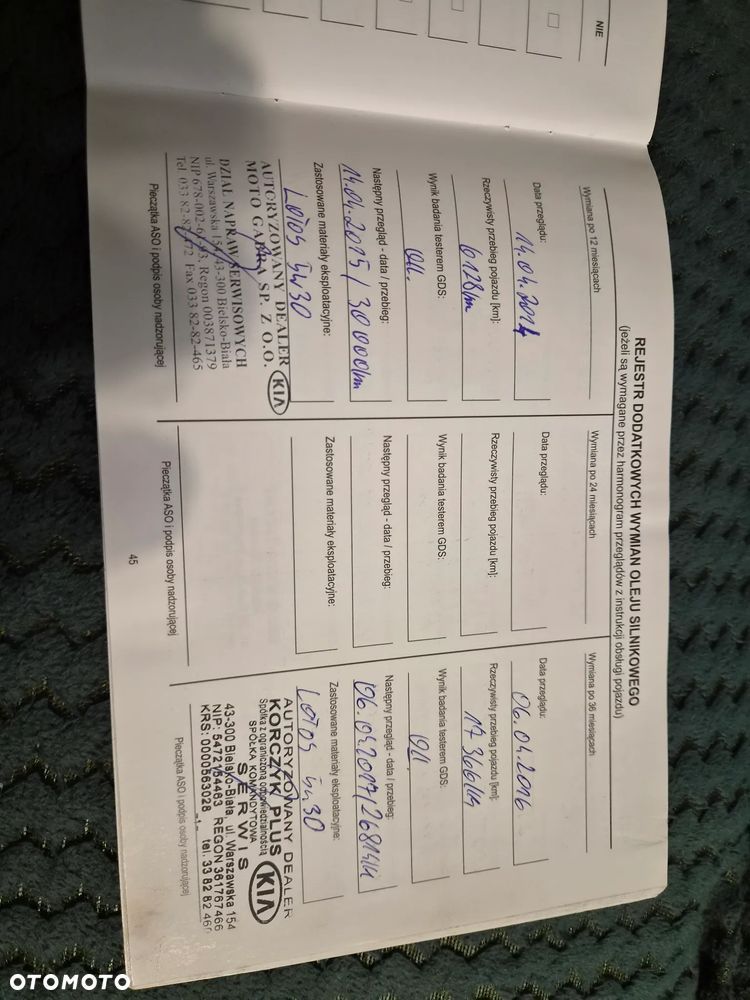 NIE
REJESTR DODATKOWYCH WYMIAN OLEJU SILNIKOWEGO
(jeżeli są wymagane przez harmonogram przeglądów z instrukcji obsługi pojazdu)
Wymiana po 12 miesiącach
Data przeglądu:
14.04.2014
Rzeczywisty przebieg pojazdu [km]:
Wynik badania testerem GDS:
Następny przegląd - data / przebieg:
14.04.2015 / 30000km
Zastosowane materiały eksploatacyjne:
Lotos 5w30
AUTORYZOWANY DEALER
MOTO GAMA SP. Z O.O.
KIA
DZIAŁ NAPRAW SERWISOWYCH
ul. Warszawska 154, 43-300 Bielsko-Biała
Regon 003871379
Fax 033 82-82-465
Pieczątka ASO i podpis osoby nadzorującej
Wymiana po 24 miesiącach
Data przeglądu:
Rzeczywisty przebieg pojazdu [km]:
Wynik badania testerem GDS:
Następny przegląd - data / przebieg:
Zastosowane materiały eksploatacyjne:
Pieczątka ASO i podpis osoby nadzorującej
45
Wymiana po 36 miesiącach
Data przeglądu:
06.04.2016
Rzeczywisty przebieg pojazdu [km]:
17366km
Wynik badania testerem GDS:
Następny przegląd - data / przebieg:
06.04.2017
Zastosowane materiały eksploatacyjne:
Lotos 5w30
AUTORYZOWANY DEALER
KORCZYK PLUS
KIA
Spółka z ograniczoną odpowiedzialnością
SPÓŁKA KOMANDYTOWA
SERWIS
43-300 Bielsko-Biała, ul. Warszawska 154
NIP: 5472154463 REGON 361767466
KRS: 0000563028 -1- tel. 33 82 82 460
Pieczątka ASO i podpis osoby nadzorującej
OTOMOTO